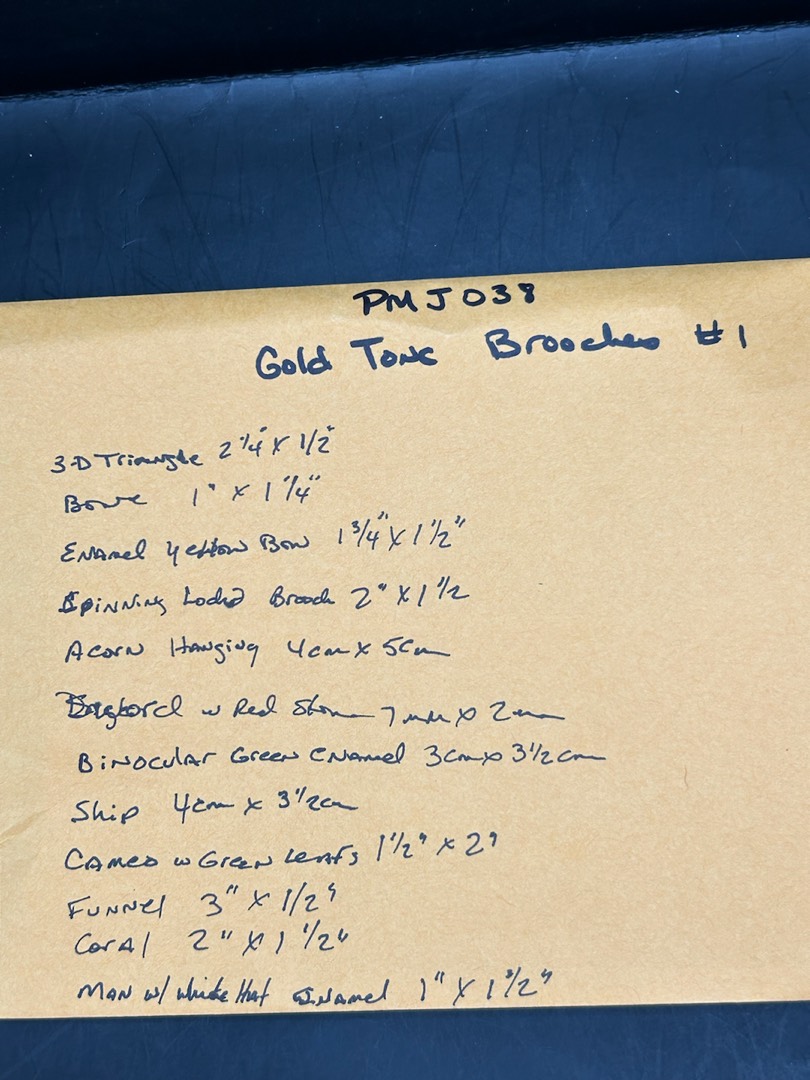 PMJ038
Gold Tone Brooches #1
3-D Triangle 2 1/4" X 1/2"
1" x 1 1/4"
ENAMEL Yellow Bow 1 3/4" X 1 1/2"
Spinning Brooch 2" X 1 1/2
Acorn Hanging 4cm x 5cm
w Red Stone 7mm x 2cm
Binocular Green ENAMEL 3cm x 3 1/2 cm
Ship 4cm x 3 1/2cm
CAMEO w Green Leafs 1 1/2" x 2"
FUNNEL 3" X 1/2"
CorAl 2" X 1 1/2"
MAN w/ white Hat ENAMEL 1" X 1 1/2"